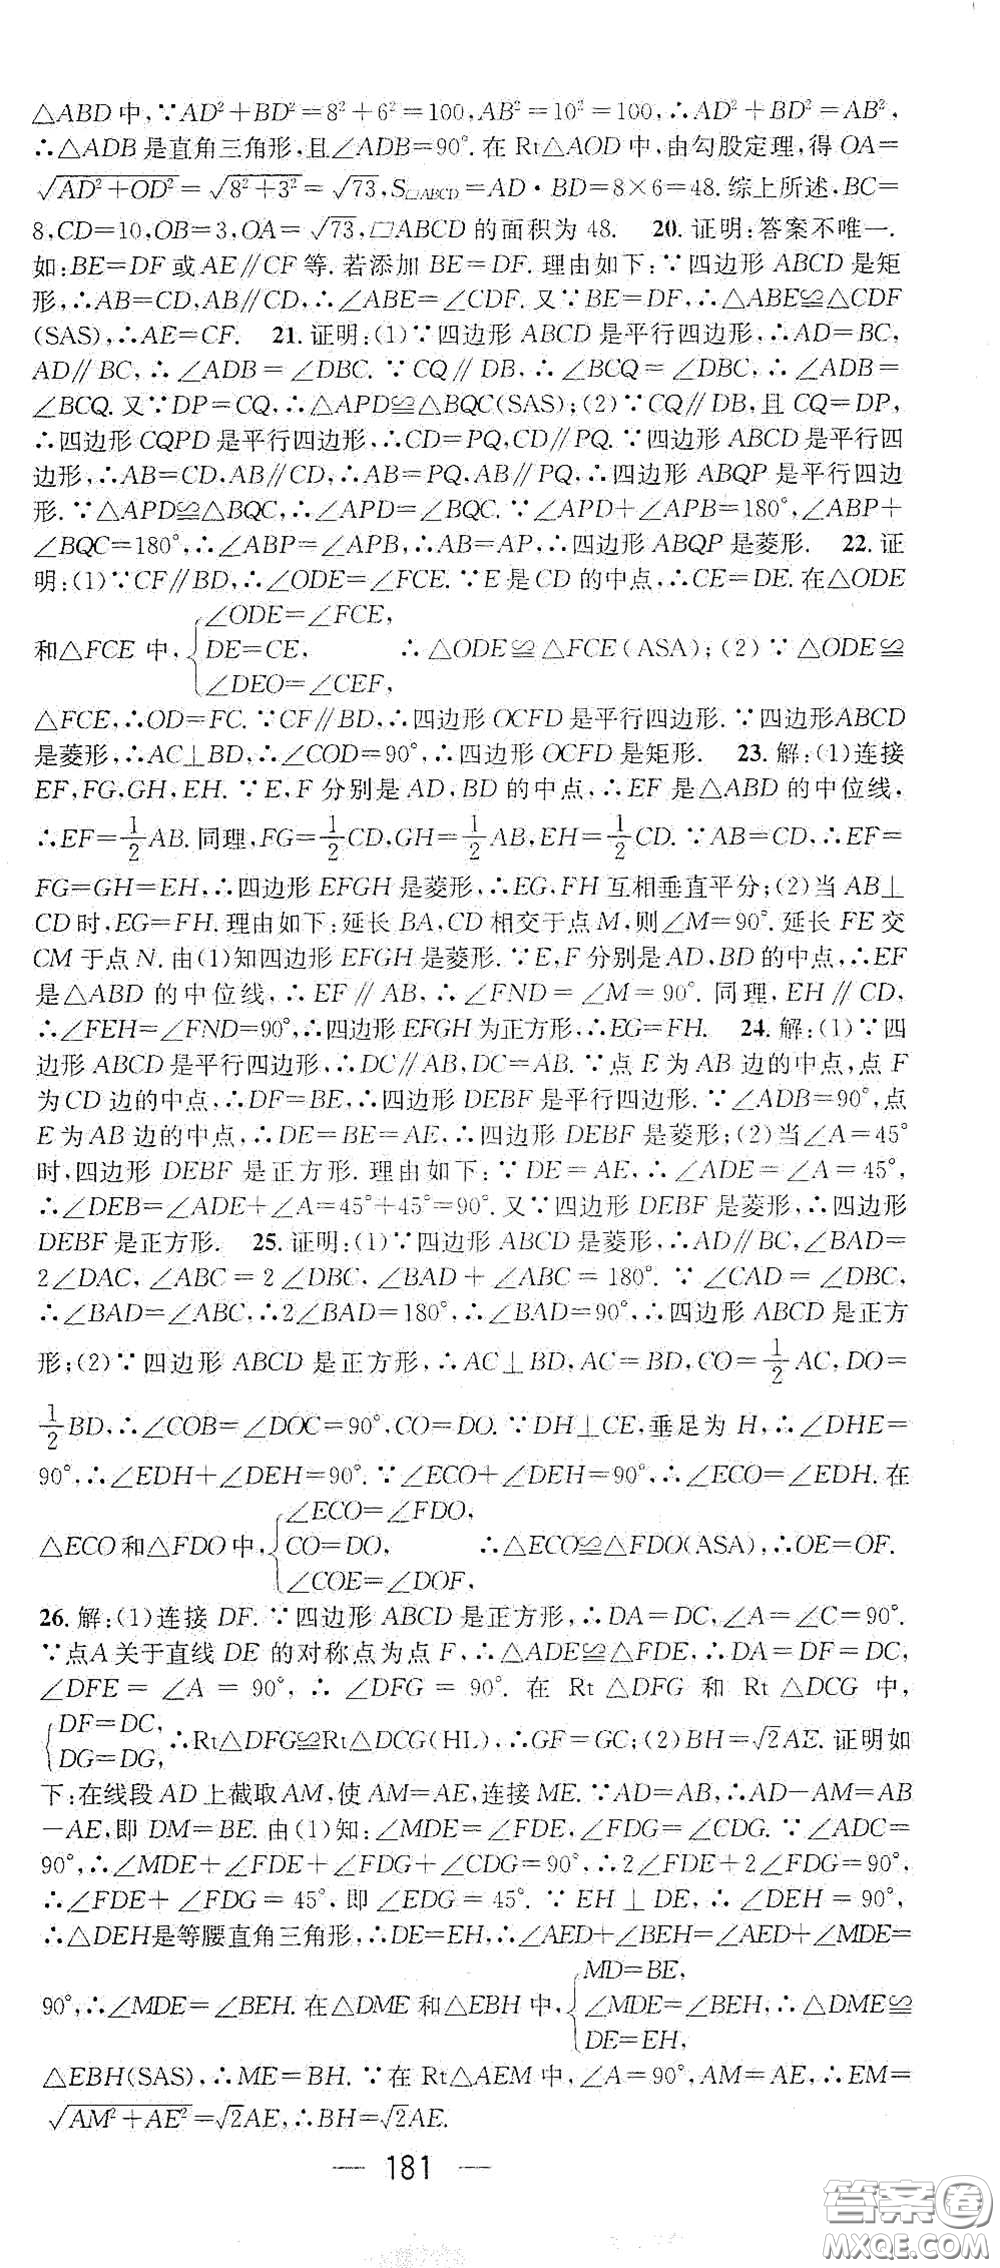 △ABD中,∵AD²+BD²=8²+6²=100,AB²=10²=100,∴AD²+BD²=AB²,
∴△ADB是直角三角形,且∠ADB=90°.在Rt△AOD中,由勾股定理,得OA=
√(AD²+OD²)=√(8²+3²)=√73,S□ABCD=AD·BD=8×6=48.综上所述,BC=
8,CD=10,OB=3,OA=√73,□ABCD的面积为48. 20.证明:答案不唯一.
如:BE=DF或AE∥CF等.若添加BE=DF.理由如下:∵四边形ABCD是矩
形,∴AB=CD,AB∥CD,∴∠ABE=∠CDF.又∵BE=DF,∴△ABE≌△CDF
(SAS),∴AE=CF. 21.证明:(1)∵四边形ABCD是平行四边形,∴AD=BC,
AD∥BC,∴∠ADB=∠DBC.∵CQ∥DB,∴∠BCQ=∠DBC,∴∠ADB=
∠BCQ.又∵DP=CQ,∴△APD≌△BQC(SAS);(2)∵CQ∥DB,且CQ=DP,
∴四边形CQPD是平行四边形,∴CD=PQ,CD∥PQ.∵四边形ABCD是平行四
边形,∴AB=CD,AB∥CD,∴AB=PQ,AB∥PQ,∴四边形ABQP是平行四边
形.∵△APD≌△BQC,∴∠APD=∠BQC.∵∠APD+∠APB=180°,∠ABP+
∠BQC=180°,∴∠ABP=∠APB,∴AB=AP,∴四边形ABQP是菱形. 22.证
明:(1)∵CF∥BD,∴∠ODE=∠FCE.∵E是CD的中点,∴CE=DE.在△ODE
∠ODE=∠FCE,
和△FCE中,{DE=CE, ∴△ODE≌△FCE(ASA);(2)∵△ODE≌
∠DEO=∠CEF,
△FCE,∴OD=FC.∵CF∥BD,∴四边形OCFD是平行四边形.∵四边形ABCD
是菱形,∴AC⊥BD,∴∠COD=90°,∴四边形OCFD是矩形. 23.解:(1)连接
EF,FG,GH,EH.∵E,F分别是AD,BD的中点,∴EF是△ABD的中位线,
∴EF=1/2AB.同理,FG=1/2CD,GH=1/2AB,EH=1/2CD.∵AB=CD,∴EF=
FG=GH=EH,∴四边形EFGH是菱形,∴EG,FH互相垂直平分;(2)当AB⊥
CD时,EG=FH.理由如下:延长BA,CD相交于点M,则∠M=90°.延长FE交
CM于点N.由(1)知四边形EFGH是菱形.∵E,F分别是AD,BD的中点,∴EF
是△ABD的中位线,∴EF∥AB,∴∠FND=∠M=90°.同理,EH∥CD,
∴∠FEH=∠FND=90°,∴四边形EFGH为正方形,∴EG=FH. 24.解:(1)∵四
边形ABCD是平行四边形,∴DC∥AB,DC=AB.∵点E为AB边的中点,点F
为CD边的中点,∴DF=BE,∴四边形DEBF是平行四边形.∵∠ADB=90°,点
E为AB边的中点,∴DE=BE=AE,∴四边形DEBF是菱形;(2)当∠A=45°
时,四边形DEBF是正方形.理由如下:∵DE=AE,∴∠ADE=∠A=45°,
∴∠DEB=∠ADE+∠A=45°+45°=90°.又∵四边形DEBF是菱形,∴四边形
DEBF是正方形. 25.证明:(1)∵四边形ABCD是菱形,∴AD∥BC,∠BAD=
2∠DAC,∠ABC=2∠DBC,∠BAD+∠ABC=180°.∵∠CAD=∠DBC,
∴∠BAD=∠ABC,∴2∠BAD=180°,∴∠BAD=90°,∴四边形ABCD是正方
形;(2)∵四边形ABCD是正方形,∴AC⊥BD,AC=BD,CO=1/2AC,DO=
1/2BD,∴∠COB=∠DOC=90°,CO=DO.∵DH⊥CE,垂足为H,∴∠DHE=
90°,∴∠EDH+∠DEH=90°.∵∠ECO+∠DEH=90°,∴∠ECO=∠EDH.在
∠ECO=∠FDO,
△ECO和△FDO中,{CO=DO, ∴△ECO≌△FDO(ASA),∴OE=OF.
∠COE=∠DOF,
26.解:(1)连接DF.∵四边形ABCD是正方形,∴DA=DC,∠A=∠C=90°.
∵点A关于直线DE的对称点为点F,∴△ADE≌△FDE,∴DA=DF=DC,
∠DFE=∠A=90°,∴∠DFG=90°.在Rt△DFG和Rt△DCG中,
{DF=DC,
DG=DG, ∴Rt△DFG≌Rt△DCG(HL),∴GF=GC;(2)BH=√2AE.证明如
下:在线段AD上截取AM,使AM=AE,连接ME.∵AD=AB,∴AD-AM=AB
-AE,即DM=BE.由(1)知:∠MDE=∠FDE,∠FDG=∠CDG.∵∠ADC=
90°,∴∠MDE+∠FDE+∠FDG+∠CDG=90°,∴2∠FDE+2∠FDG=90°,
∴∠FDE+∠FDG=45°,即∠EDG=45°.∵EH⊥DE,∴∠DEH=90°,
∴△DEH是等腰直角三角形,∴DE=EH,∴∠AED+∠BEH=∠AED+∠MDE=
MD=BE,
90°,∴∠MDE=∠BEH.在△DME和△EBH中,{∠MDE=∠BEH,∴△DME≌
DE=EH,
△EBH(SAS),∴ME=BH.∵在Rt△AEM中,∠A=90°,AM=AE,∴EM=
√(AM²+AE²)=√2AE,∴BH=√2AE.
— 181 —
答案圈
MXQE.COM